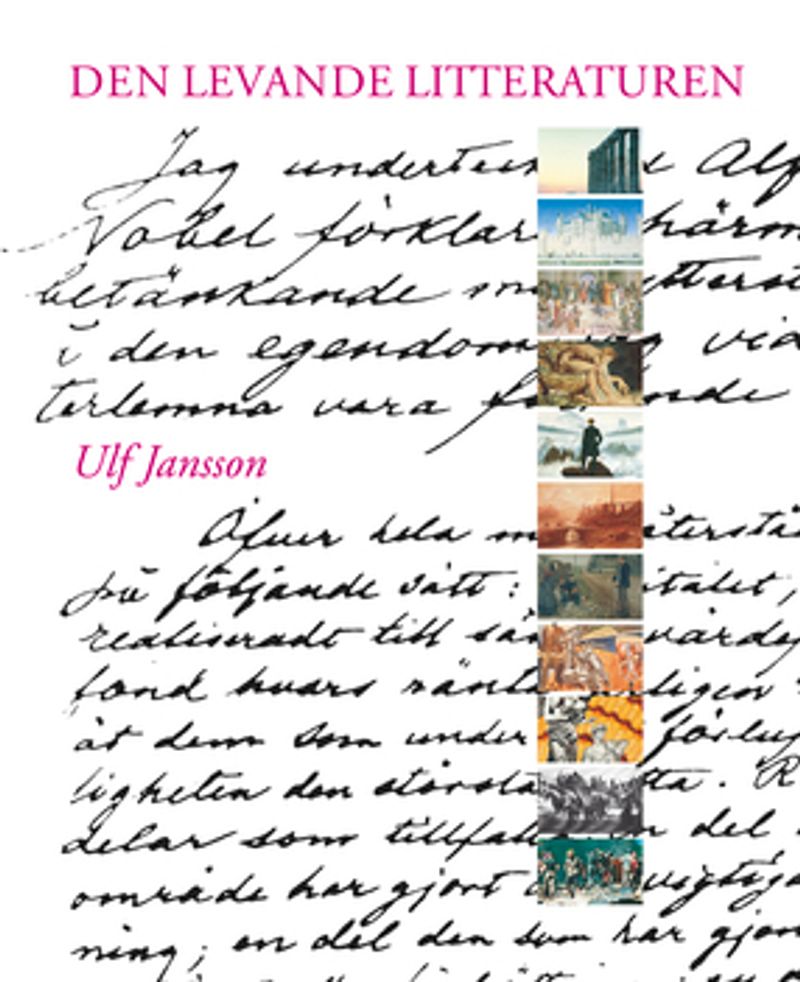 DEN LEVANDE LITTERATUREN
Jag underteck s Alf
Nobel förklarar härm
betänkande m ytterst
i den egendom vid
terlemna vara följande
Ulf Jansson
Öfver hela m återstå
på följande sätt: italet,
realiseradt till värde
fond hvars ränta årligen
åt dem som under förlup
ligheten den största tta. R
delar som tillfalla en del
område har gjort vigtiga
ning; en del den som har gjort